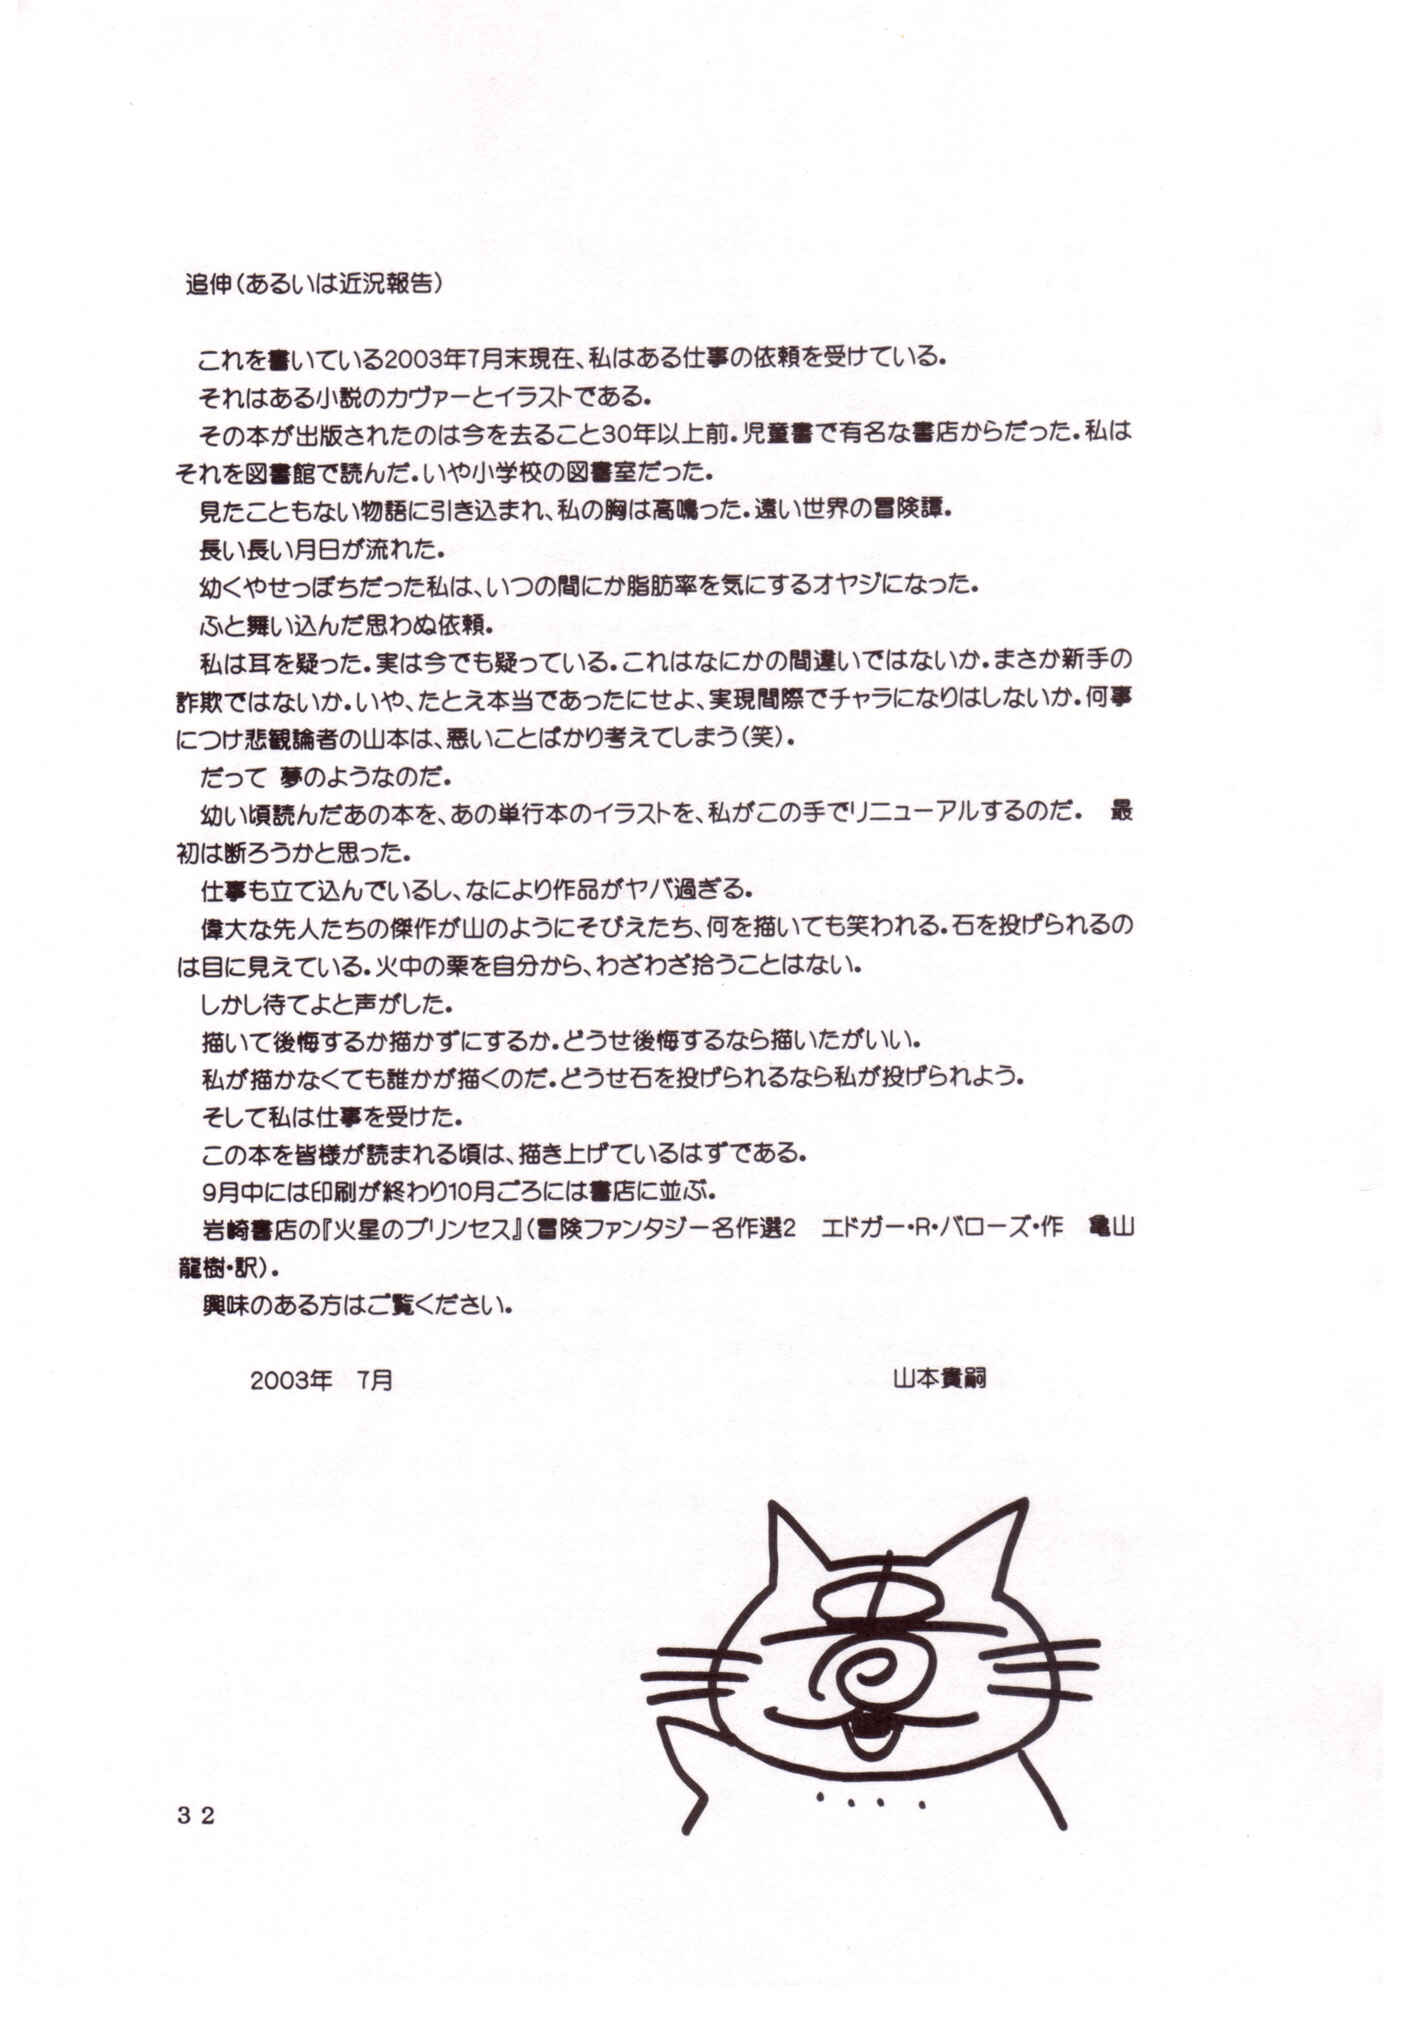 追伸(あるいは近況報告)
これを書いている2003年7月末現在、私はある仕事の依頼を受けている。
それはある小説のカヴァーとイラストである。
その本が出版されたのは今を去ること30年以上前。児童書で有名な書店からだった。私は
それを図書館で読んだ。いや小学校の図書室だった。
見たこともない物語に引き込まれ、私の胸は高鳴った。遠い世界の冒険譚。
長い長い月日が流れた。
幼くやせっぽちだった私は、いつの間にか脂肪率を気にするオヤジになった。
ふと舞い込んだ思わぬ依頼。
私は耳を疑った。実は今でも疑っている。これはなにかの間違いではないか。まさか新手の
詐欺ではないか。いや、たとえ本当であったにせよ、実現間際でチャラになりはしないか。何事
につけ悲観論者の山本は、悪いことばかり考えてしまう(笑)。
だって 夢のようなのだ。
幼い頃読んだあの本を、あの単行本のイラストを、私がこの手でリニューアルするのだ。 最
初は断ろうかと思った。
仕事も立て込んでいるし、なにより作品がヤバ過ぎる。
偉大な先人たちの傑作が山のようにそびえたち、何を描いても笑われる。石を投げられるの
は目に見えている。火中の栗を自分から、わざわざ拾うことはない。
しかし待てよと声がした。
描いて後悔するか描かずにするか。どうせ後悔するなら描いたがいい。
私が描かなくても誰かが描くのだ。どうせ石を投げられるなら私が投げられよう。
そして私は仕事を受けた。
この本を皆様が読まれる頃は、描き上げているはずである。
9月中には印刷が終わり10月ごろには書店に並ぶ。
岩崎書店の『火星のプリンセス』(冒険ファンタジー名作選2 エドガー・R・バローズ・作 亀山
龍樹・訳)。
興味のある方はご覧ください。
2003年 7月 山本貴嗣
32